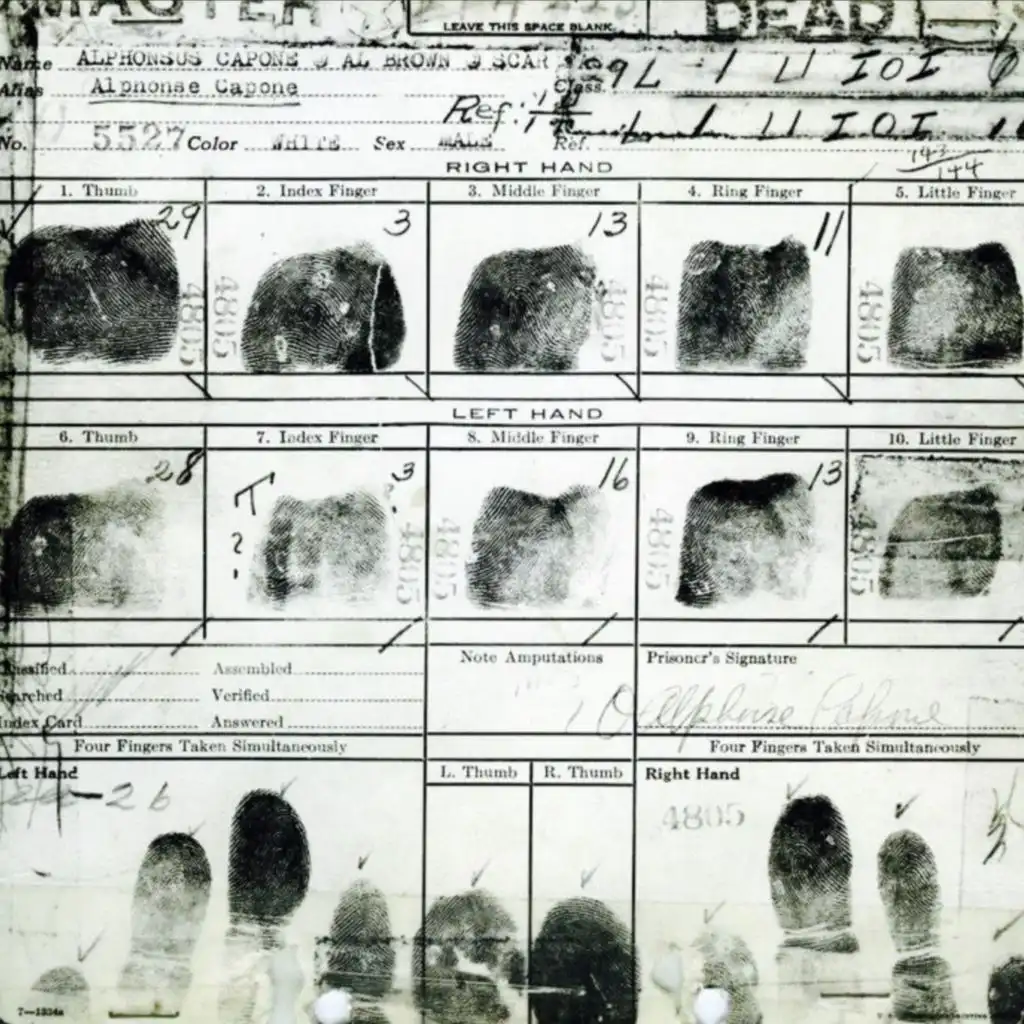 MASTER DEAD
LEAVE THIS SPACE BLANK
Name ALPHONSUS CAPONE AL BROWN SCAR
Alias Alphonse Capone
Class. 29 L 1 U IOI 6
Ref: 1 U IOI
No. 5527 Color WHITE Sex MALE Ref.
143
144
RIGHT HAND
1. Thumb 2. Index Finger 3. Middle Finger 4. Ring Finger 5. Little Finger
29 3 13 11
4805 4805 4805 4805 4805
LEFT HAND
6. Thumb 7. Index Finger 8. Middle Finger 9. Ring Finger 10. Little Finger
28 T ? 3 16 13
4805 4805 4805 4805
Classified Assembled Note Amputations Prisoner's Signature
Searched Verified
Index Card Answered Alphonse Capone
Four Fingers Taken Simultaneously Four Fingers Taken Simultaneously
Left Hand L. Thumb R. Thumb Right Hand
26 4805
7—1324a